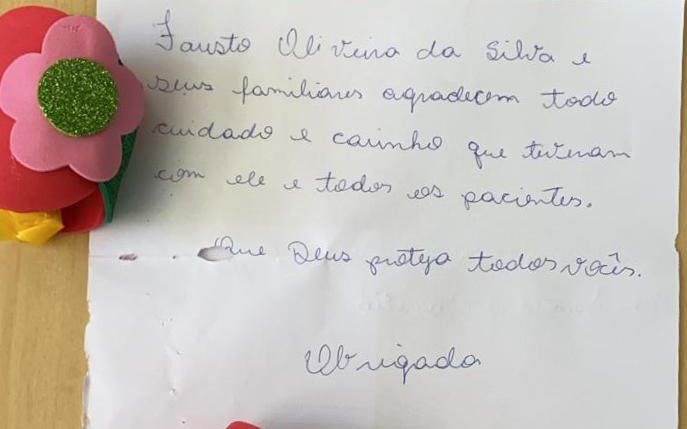 Fausto Oliveira da Silva e
seus familiares agradecem todo
cuidado e carinho que tiveram
com ele e todos os pacientes.
Que Deus proteja todos vocês.
Obrigada